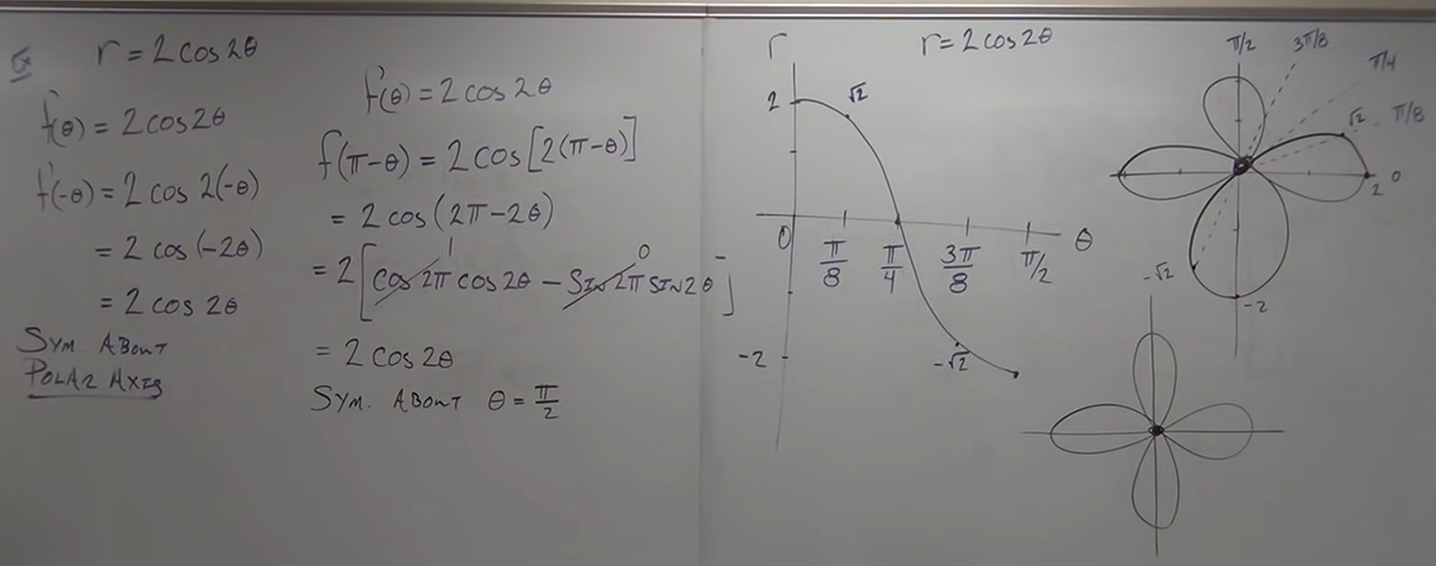 Ex r = 2 cos 2θ
f(θ) = 2 cos 2θ
f(-θ) = 2 cos 2(-θ)
= 2 cos (-2θ)
= 2 cos 2θ
SYM. ABOUT
POLAR AXIS
f(θ) = 2 cos 2θ
f(π-θ) = 2 cos [2(π-θ)]
= 2 cos (2π-2θ)
1 0
= 2[cos 2π cos 2θ - SIN 2π SIN 2θ]
= 2 cos 2θ
SYM. ABOUT θ = π/2
r
r = 2 cos 2θ
2
√2
0
π/8
π/4
3π/8
π/2
θ
-2
-√2
π/2
3π/8
π/4
√2
π/8
2
0
-√2
-2